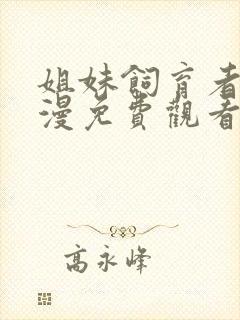 姐妹飼育者
漫免費觀看
高永峰